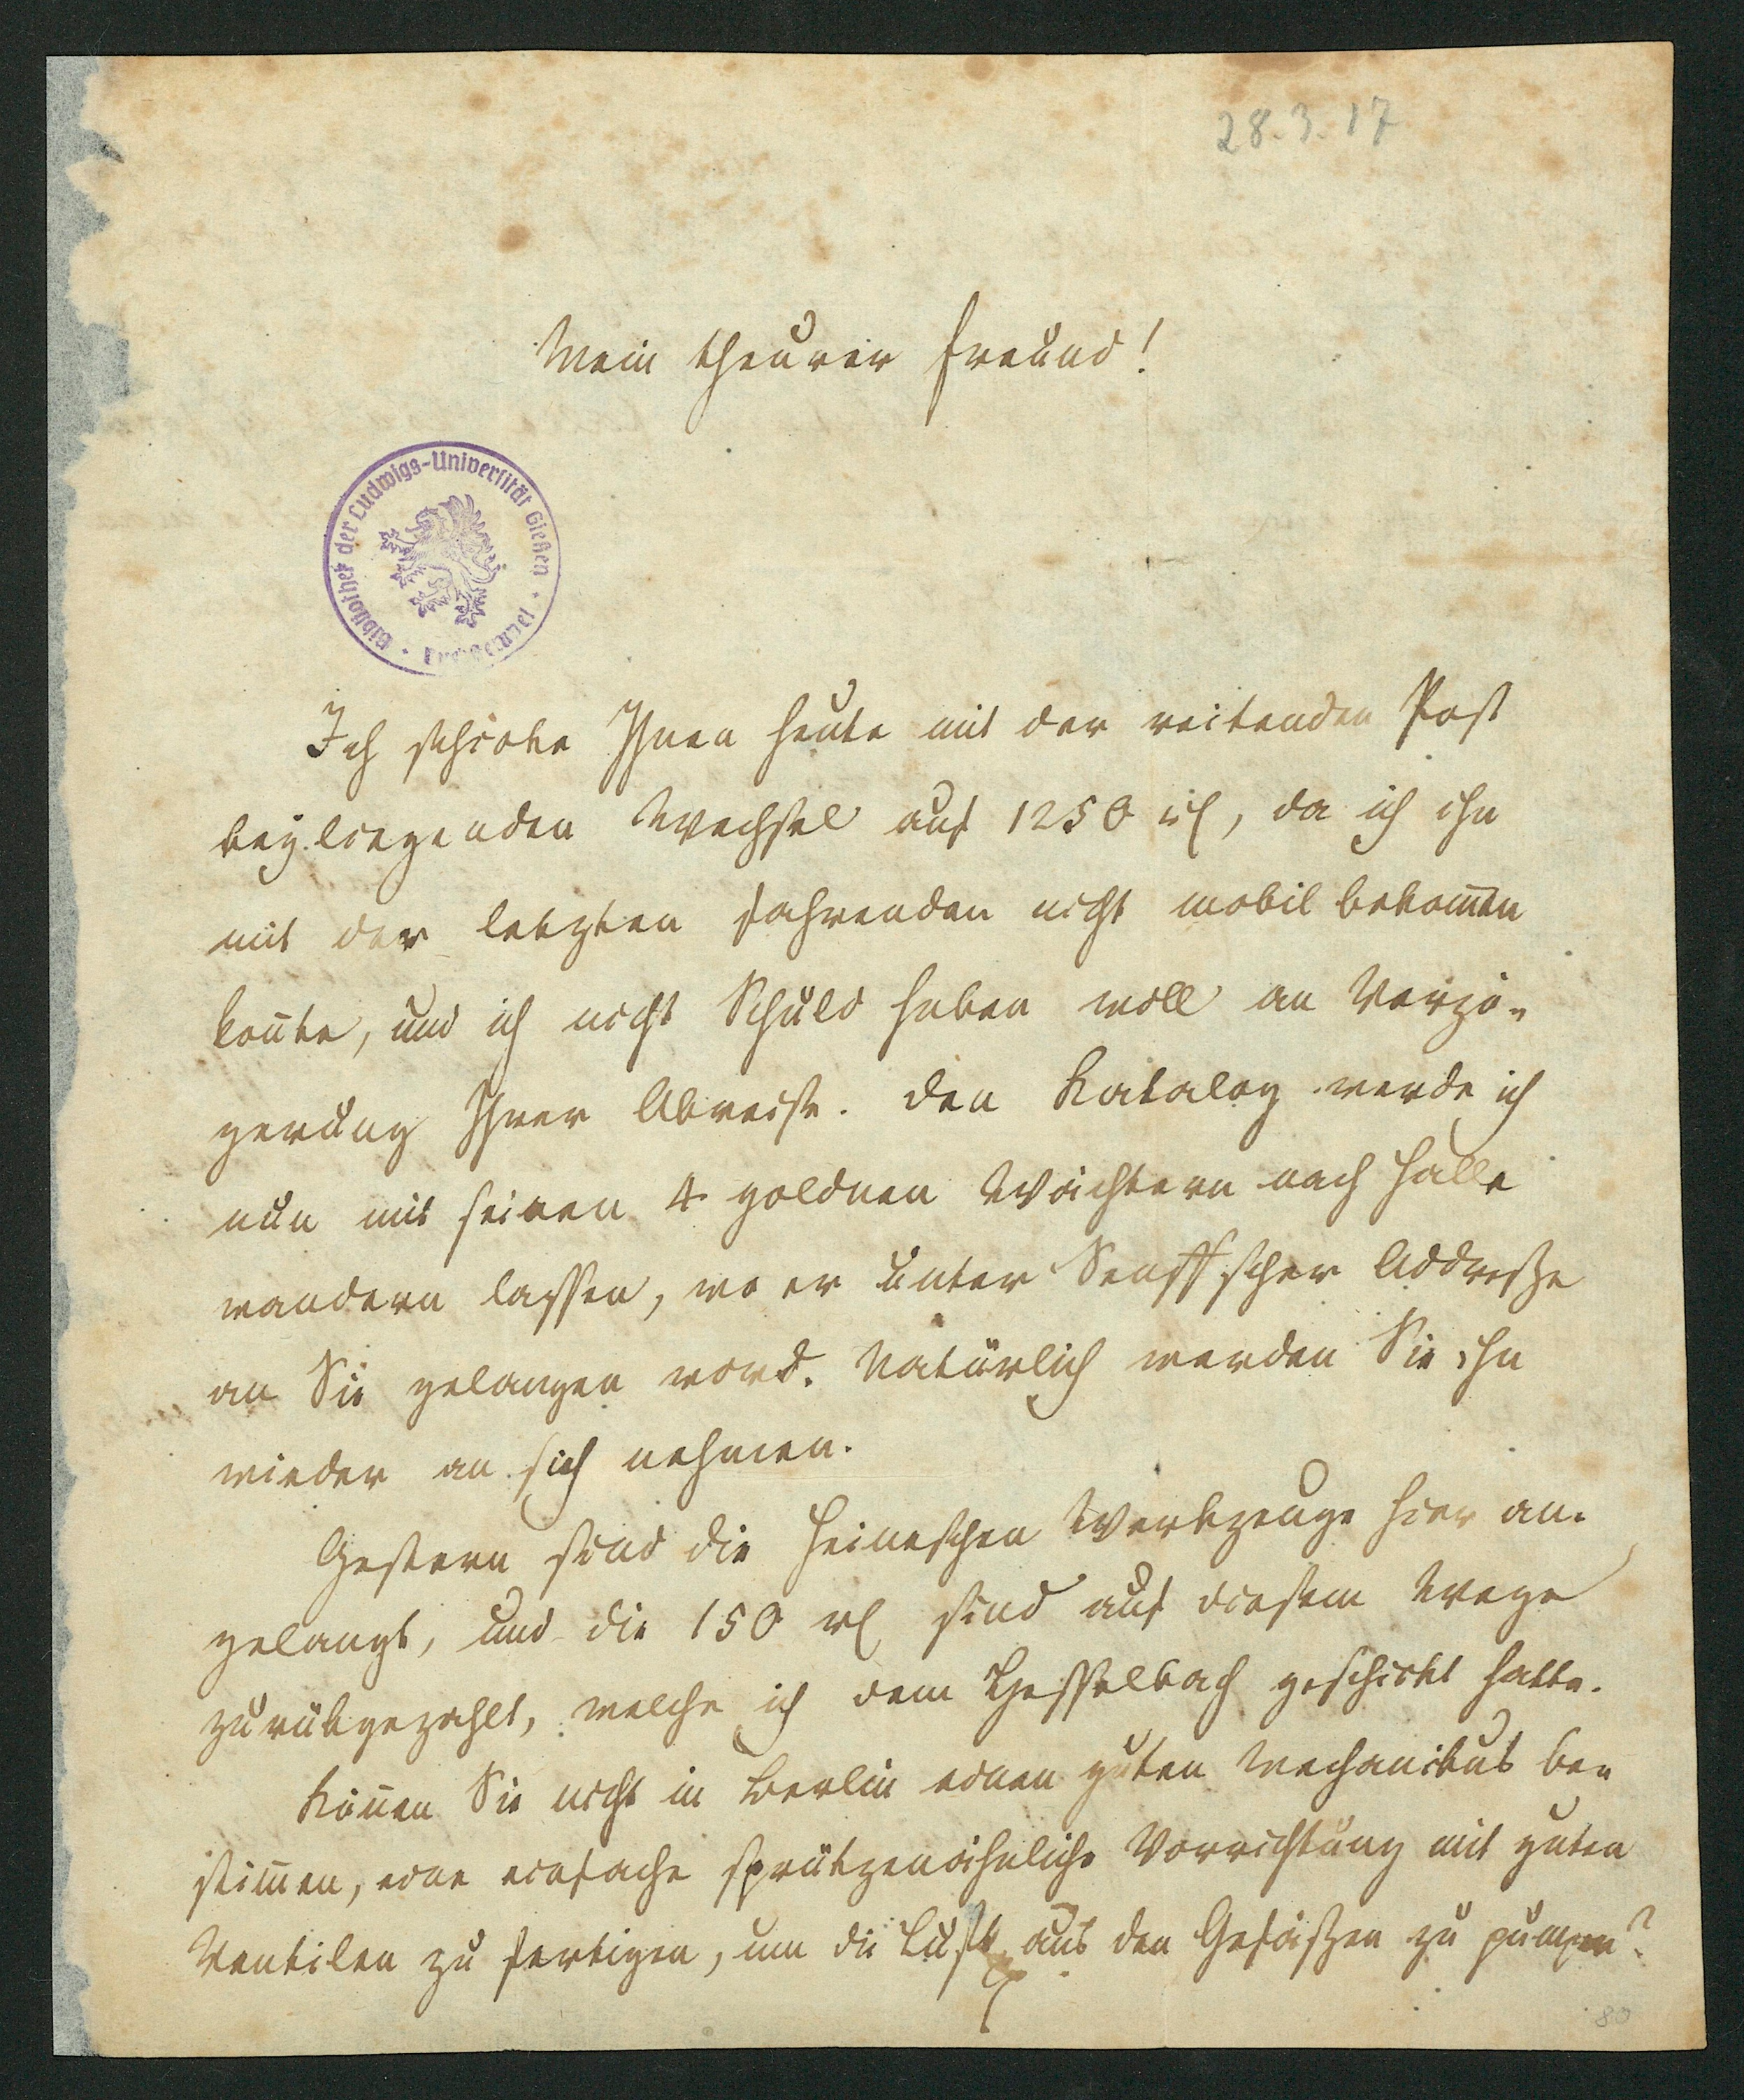 28.3.17
Mein theurer Freund!
Bibliothek der Ludwigs-Universität Gießen
Ich schicke Ihnen heute mit der reitenden Post
beyliegenden Wechsel auf 1250 rl, da ich ihn
mit der letzten fahrenden nicht mobil bekom̅en
kon̅te, und ich nicht Schuld haben will an Verzö-
gerung Ihrer Abreise. Den Katalog werde ich
nun mit seinen 4 goldnen Wächtern nach Halle
wandern lassen, wo er unter Senffscher Addreße
an Sie gelangen wird. Natürlich werden Sie ihn
wieder an sich nehmen.
Gestern sind die Heineschen Werkzeuge hier an-
gelangt, und die 150 rl sind auf diesem Wege
zurükgezahlt, welche ich dem Hesselbach geschickt hatte.
Kön̅en Sie nicht in Berlin einen guten Mechanikus be-
stim̅en, eine einfache sprützenähnliche Vorrichtung mit guten
Ventilen zu fertigen, um die Luft aus den Gefäßen zu pumpen?
80